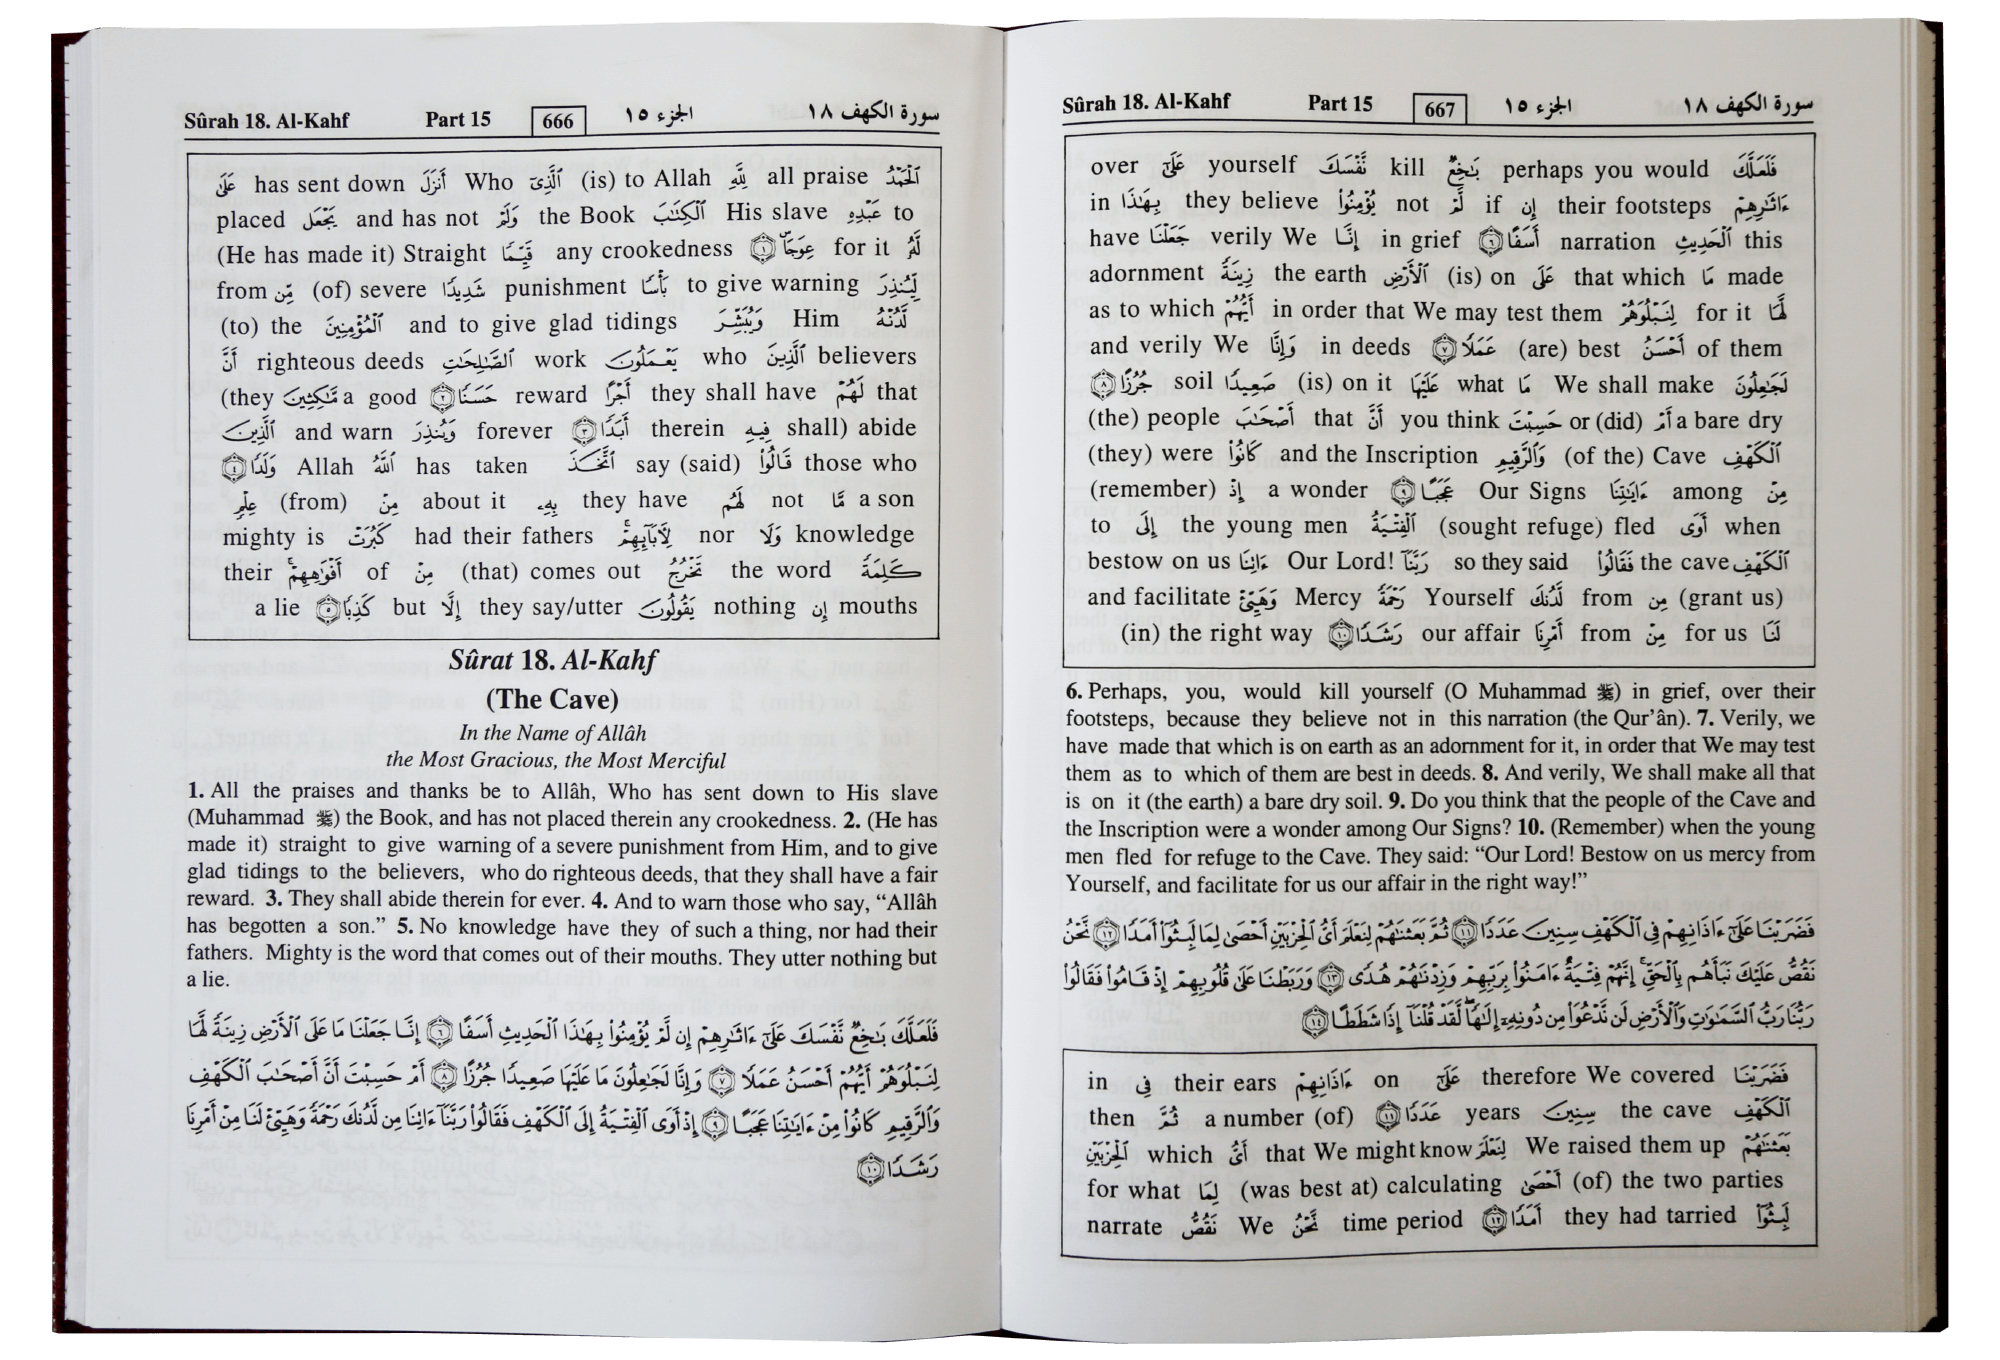 Sûrah 18. Al-Kahf Part 15 666 الجزء ١٥ سورة الكهف ١٨
ٱلْحَمْدُ all praise لِلَّهِ (is) to Allah ٱلَّذِىٓ Who أَنزَلَ has sent down عَلَىٰ
to عَبْدِهِ His slave ٱلْكِتَـٰبَ the Book وَلَمْ and has not يَجْعَل placed
لَّهُۥ for it عِوَجَاۜ ۝١ any crookedness قَيِّمًا (He has made it) Straight
لِّيُنذِرَ to give warning بَأْسًا punishment شَدِيدًا (of) severe مِّن from
لَّدُنْهُ Him وَيُبَشِّرَ and to give glad tidings ٱلْمُؤْمِنِينَ (to) the
believers ٱلَّذِينَ who يَعْمَلُونَ work ٱلصَّـٰلِحَـٰتِ righteous deeds أَنَّ
that لَهُمْ they shall have أَجْرًا reward حَسَنًا ۝٢ a good مَّـٰكِثِينَ (they
shall) abide فِيهِ therein أَبَدًا ۝٣ forever وَيُنذِرَ and warn ٱلَّذِينَ
those who قَالُوا۟ say (said) ٱتَّخَذَ has taken ٱللَّهُ Allah وَلَدًا ۝٤
a son مَّا not لَهُم they have بِهِۦ about it مِنْ (from) عِلْمٍ
knowledge وَلَا nor لِـَٔابَآئِهِمْ had their fathers كَبُرَتْ mighty is
كَلِمَةً the word تَخْرُجُ (that) comes out مِنْ of أَفْوَٰهِهِمْ their
mouths إِن nothing يَقُولُونَ they say/utter إِلَّا but كَذِبًا ۝٥ a lie
Sûrat 18. Al-Kahf
(The Cave)
In the Name of Allâh
the Most Gracious, the Most Merciful
1. All the praises and thanks be to Allâh, Who has sent down to His slave
(Muhammad ﷺ) the Book, and has not placed therein any crookedness. 2. (He has
made it) straight to give warning of a severe punishment from Him, and to give
glad tidings to the believers, who do righteous deeds, that they shall have a fair
reward. 3. They shall abide therein for ever. 4. And to warn those who say, “Allâh
has begotten a son.” 5. No knowledge have they of such a thing, nor had their
fathers. Mighty is the word that comes out of their mouths. They utter nothing but
a lie.
فَلَعَلَّكَ بَـٰخِعٌ نَّفْسَكَ عَلَىٰٓ ءَاثَـٰرِهِمْ إِن لَّمْ يُؤْمِنُوا۟ بِهَـٰذَا ٱلْحَدِيثِ أَسَفًا ۝٦ إِنَّا جَعَلْنَا مَا عَلَى ٱلْأَرْضِ زِينَةً لَّهَا
لِنَبْلُوَهُمْ أَيُّهُمْ أَحْسَنُ عَمَلًا ۝٧ وَإِنَّا لَجَـٰعِلُونَ مَا عَلَيْهَا صَعِيدًا جُرُزًا ۝٨ أَمْ حَسِبْتَ أَنَّ أَصْحَـٰبَ ٱلْكَهْفِ
وَٱلرَّقِيمِ كَانُوا۟ مِنْ ءَايَـٰتِنَا عَجَبًا ۝٩ إِذْ أَوَى ٱلْفِتْيَةُ إِلَى ٱلْكَهْفِ فَقَالُوا۟ رَبَّنَآ ءَاتِنَا مِن لَّدُنكَ رَحْمَةً وَهَيِّئْ لَنَا مِنْ أَمْرِنَا
رَشَدًا ۝١٠
Sûrah 18. Al-Kahf Part 15 667 الجزء ١٥ سورة الكهف ١٨
فَلَعَلَّكَ perhaps you would بَـٰخِعٌ kill نَّفْسَكَ yourself عَلَىٰٓ over
ءَاثَـٰرِهِمْ their footsteps إِن if لَّمْ not يُؤْمِنُوا۟ they believe بِهَـٰذَا in
this ٱلْحَدِيثِ narration أَسَفًا ۝٦ in grief إِنَّا verily We جَعَلْنَا have
made مَا that which عَلَى (is) on ٱلْأَرْضِ the earth زِينَةً adornment
لَّهَا for it لِنَبْلُوَهُمْ in order that We may test them أَيُّهُمْ as to which
of them أَحْسَنُ (are) best عَمَلًا ۝٧ in deeds وَإِنَّا and verily We
لَجَـٰعِلُونَ We shall make مَا what عَلَيْهَا (is) on it صَعِيدًا soil جُرُزًا ۝٨
a bare dry أَمْ or (did) حَسِبْتَ you think أَنَّ that أَصْحَـٰبَ (the) people
ٱلْكَهْفِ (of the) Cave وَٱلرَّقِيمِ and the Inscription كَانُوا۟ (they) were
مِنْ among ءَايَـٰتِنَا Our Signs عَجَبًا ۝٩ a wonder إِذْ (remember)
when أَوَى (sought refuge) fled ٱلْفِتْيَةُ the young men إِلَى to
ٱلْكَهْفِ the cave فَقَالُوا۟ so they said رَبَّنَآ Our Lord! ءَاتِنَا bestow on us
(grant us) مِن from لَّدُنكَ Yourself رَحْمَةً Mercy وَهَيِّئْ and facilitate
لَنَا for us مِنْ from أَمْرِنَا our affair رَشَدًا ۝١٠ (in) the right way
6. Perhaps, you, would kill yourself (O Muhammad ﷺ) in grief, over their
footsteps, because they believe not in this narration (the Qur’ân). 7. Verily, we
have made that which is on earth as an adornment for it, in order that We may test
them as to which of them are best in deeds. 8. And verily, We shall make all that
is on it (the earth) a bare dry soil. 9. Do you think that the people of the Cave and
the Inscription were a wonder among Our Signs? 10. (Remember) when the young
men fled for refuge to the Cave. They said: “Our Lord! Bestow on us mercy from
Yourself, and facilitate for us our affair in the right way!”
فَضَرَبْنَا عَلَىٰٓ ءَاذَانِهِمْ فِى ٱلْكَهْفِ سِنِينَ عَدَدًا ۝١١ ثُمَّ بَعَثْنَـٰهُمْ لِنَعْلَمَ أَىُّ ٱلْحِزْبَيْنِ أَحْصَىٰ لِمَا لَبِثُوٓا۟ أَمَدًا ۝١٢ نَّحْنُ
نَقُصُّ عَلَيْكَ نَبَأَهُم بِٱلْحَقِّ إِنَّهُمْ فِتْيَةٌ ءَامَنُوا۟ بِرَبِّهِمْ وَزِدْنَـٰهُمْ هُدًى ۝١٣ وَرَبَطْنَا عَلَىٰ قُلُوبِهِمْ إِذْ قَامُوا۟ فَقَالُوا۟
رَبُّنَا رَبُّ ٱلسَّمَـٰوَٰتِ وَٱلْأَرْضِ لَن نَّدْعُوَا۟ مِن دُونِهِۦٓ إِلَـٰهًا لَّقَدْ قُلْنَآ إِذًا شَطَطًا ۝١٤
فَضَرَبْنَا therefore We covered عَلَىٰٓ on ءَاذَانِهِمْ their ears فِى in
ٱلْكَهْفِ the cave سِنِينَ years عَدَدًا ۝١١ a number (of) ثُمَّ then
بَعَثْنَـٰهُمْ We raised them up لِنَعْلَمَ that We might know أَىُّ which ٱلْحِزْبَيْنِ
(of) the two parties أَحْصَىٰ (was best at) calculating لِمَا for what
لَبِثُوٓا۟ they had tarried أَمَدًا ۝١٢ time period نَّحْنُ We نَقُصُّ narrate